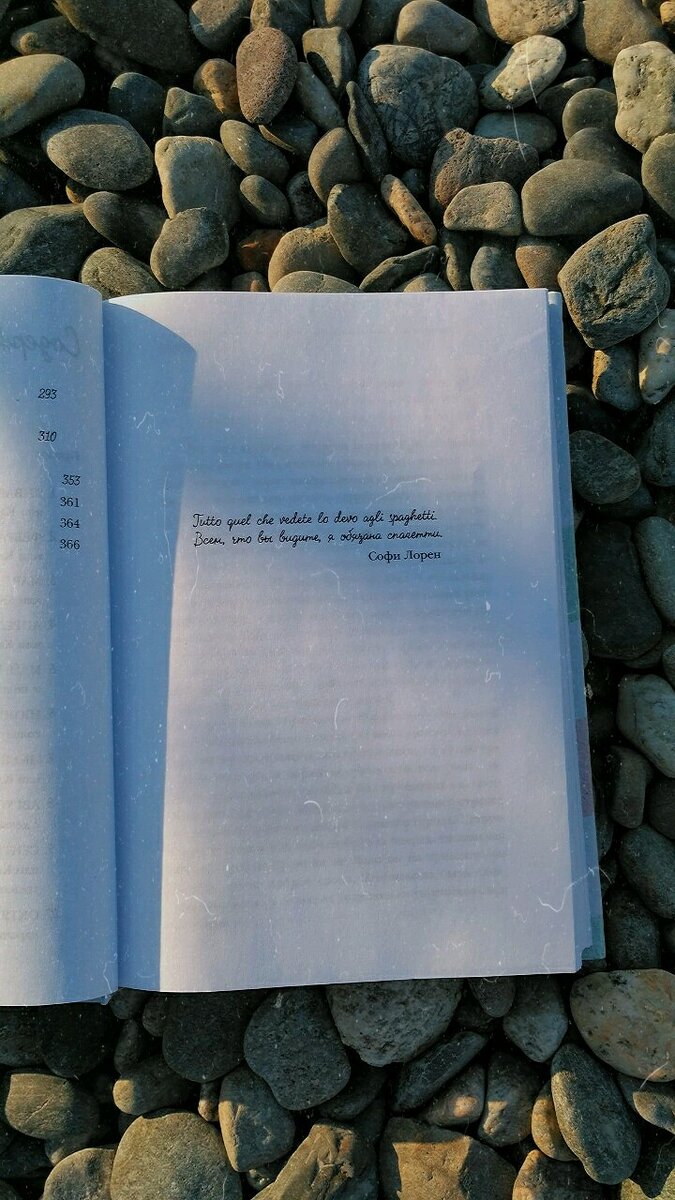 293
310
353
361
364
366
Tutto quel che vedete lo devo agli spaghetti.
Всем, что вы видите, я обязана спагетти.
Софи Лорен